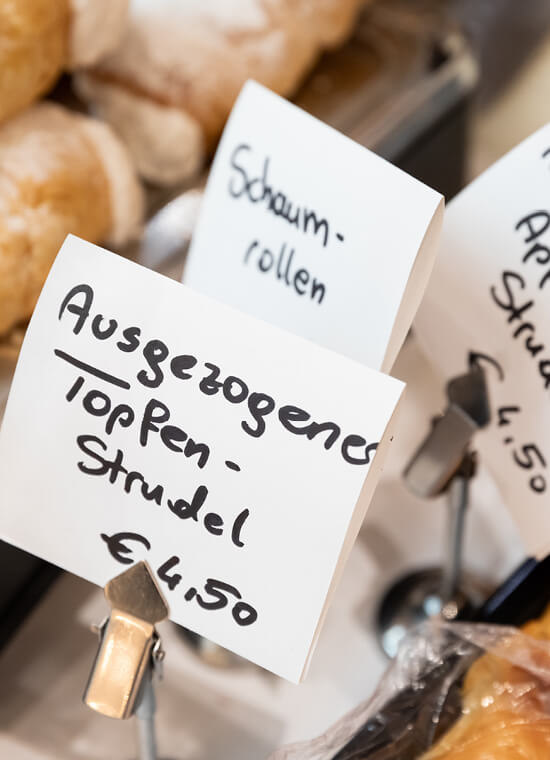 Schaum-
rollen
Ausgezogener
Topfen-
Strudel
€ 4,50
€ 4,50